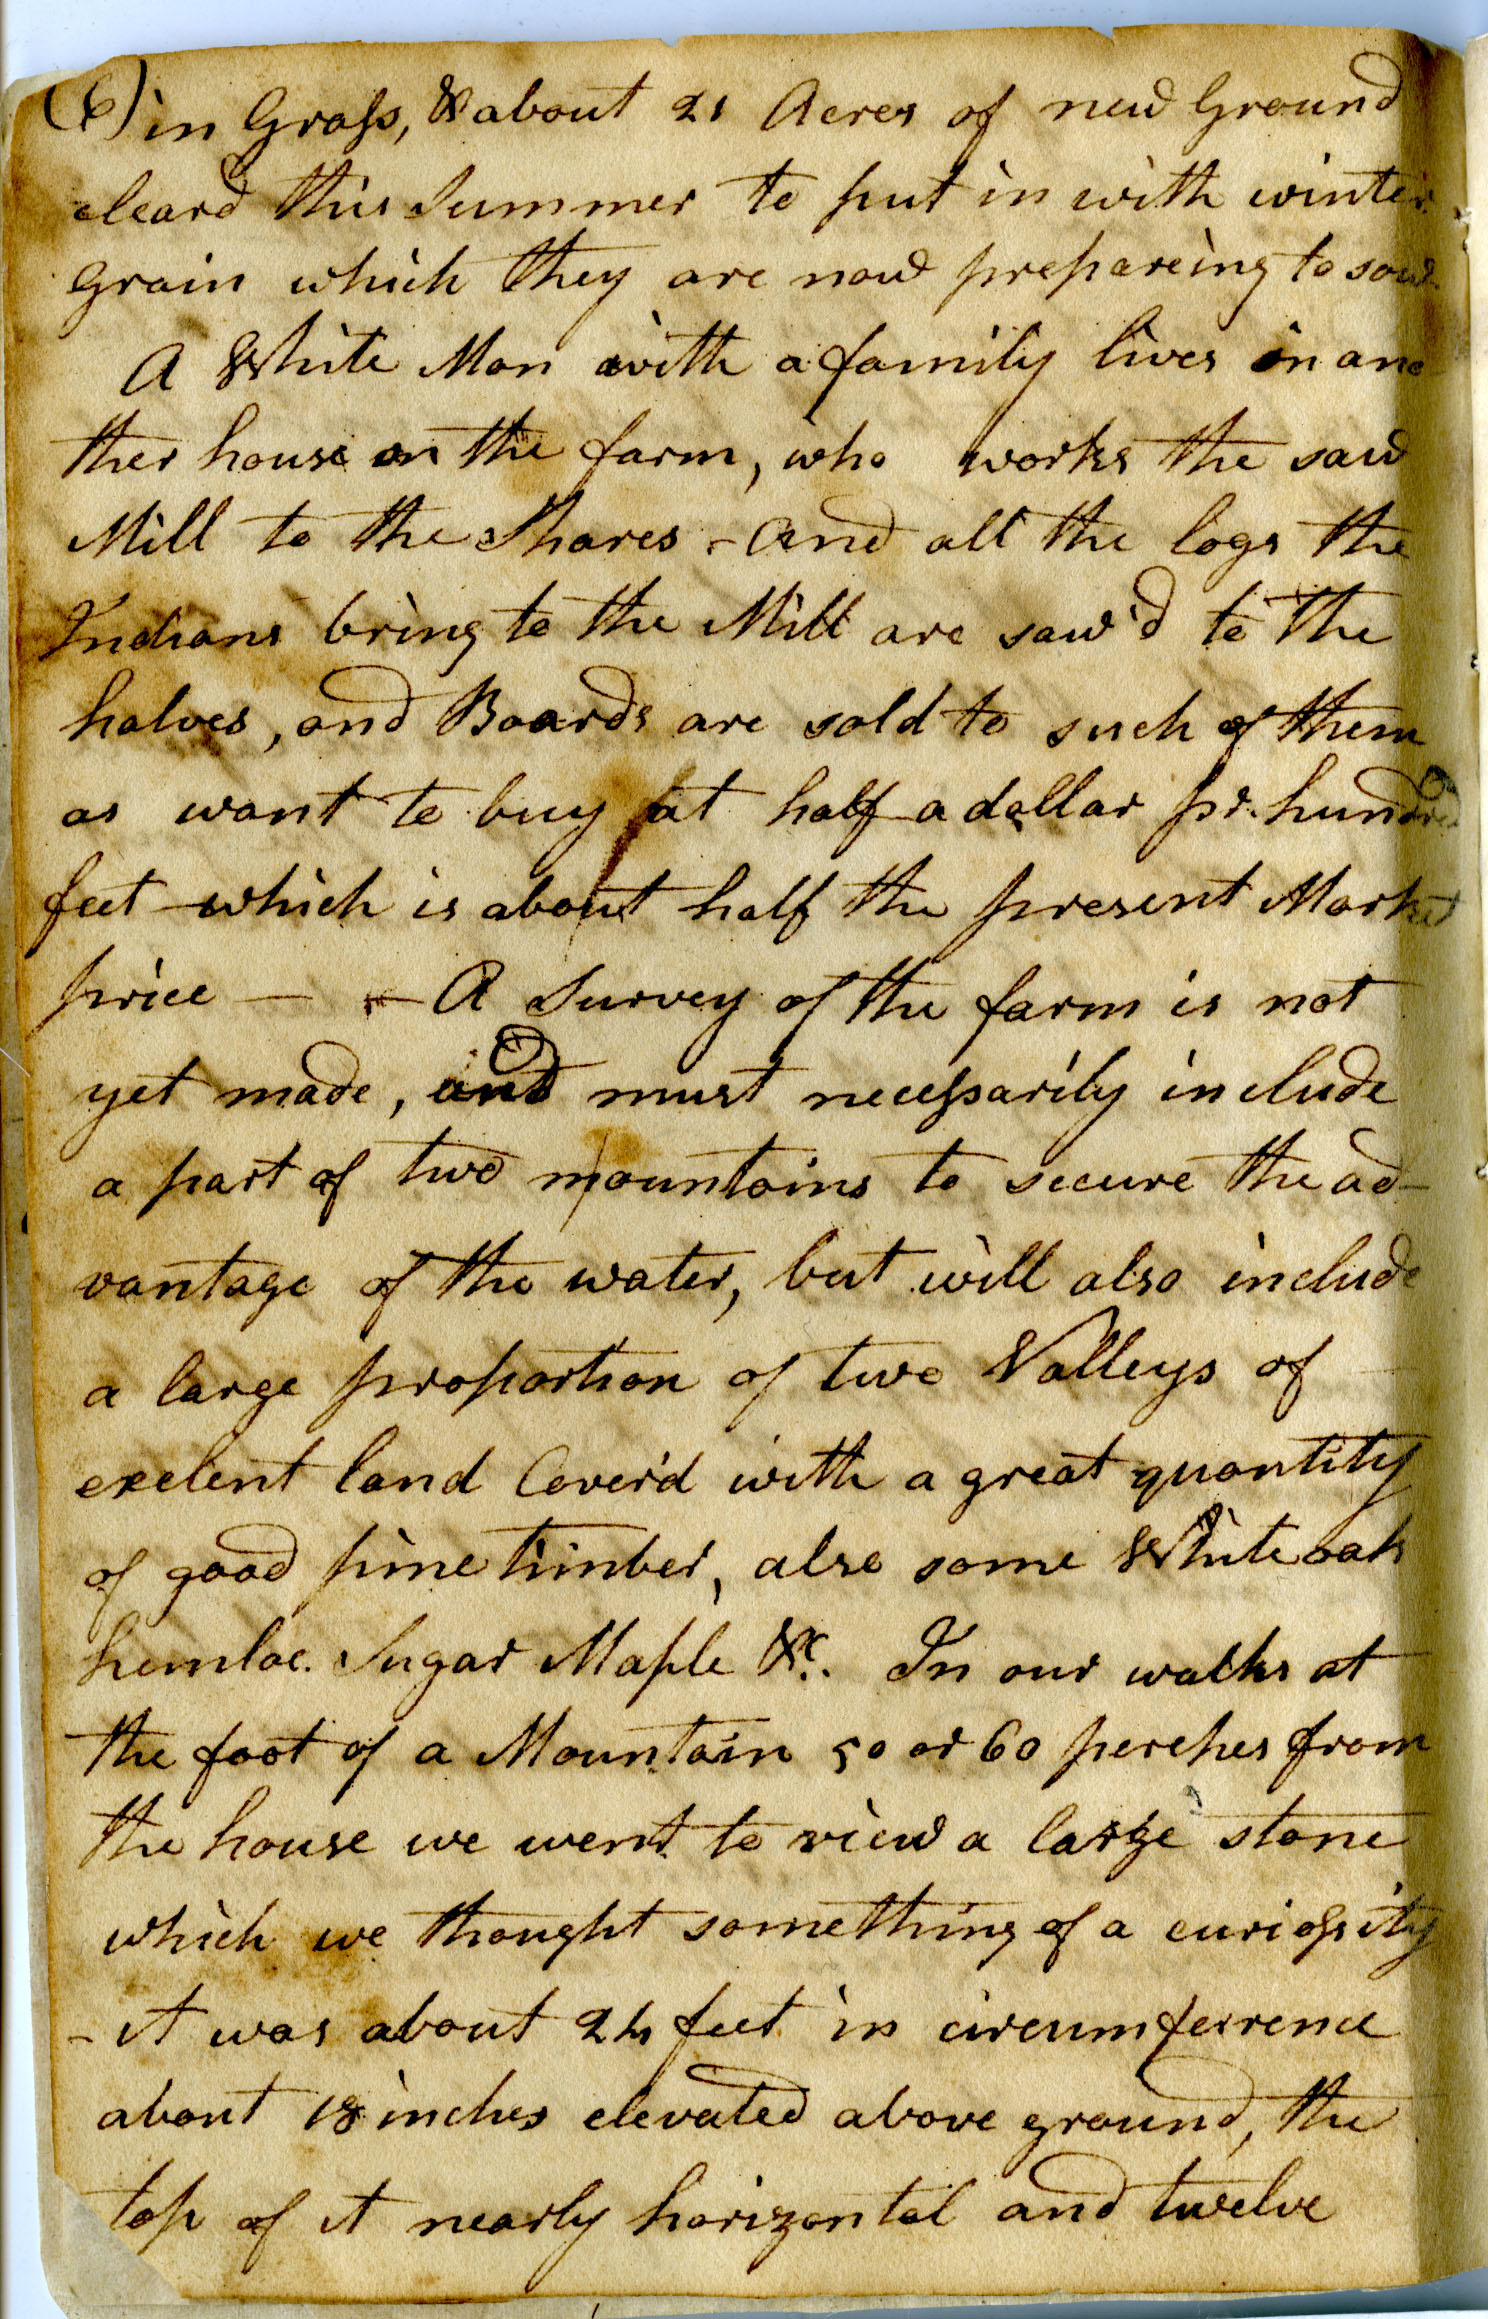 (6) in Grass, & about 21 Acres of new Ground
cleard this Summer to put in with winter
Grain which they are now prepareing to sow.
A White Man with a family lives in ano
ther house on the farm, who works the saw
Mill to the Shares - And all the logs the
Indians bring to the Mill are saw'd to the
halves, and Boards are sold to such of them
as want to buy at half a dollar pr. hundred
feet which is about half the present Market
price — — A Survey of the farm is not
yet made, and must necessarily include
a part of two mountains to secure the ad-
vantage of the water, but will also include
a large proportion of two Valleys of
exelent land Cover'd with a great quantity
of good pine timber, also some White oak
hemloc. Sugar Maple &c. In our walks at
the foot of a Mountain 50 or 60 perches from
the house we went to view a large stone
which we thought something of a curiossity
- it was about 24 feet in circumferrence
about 18 inches elevated above ground, the
top of it nearly horizontal and twelve